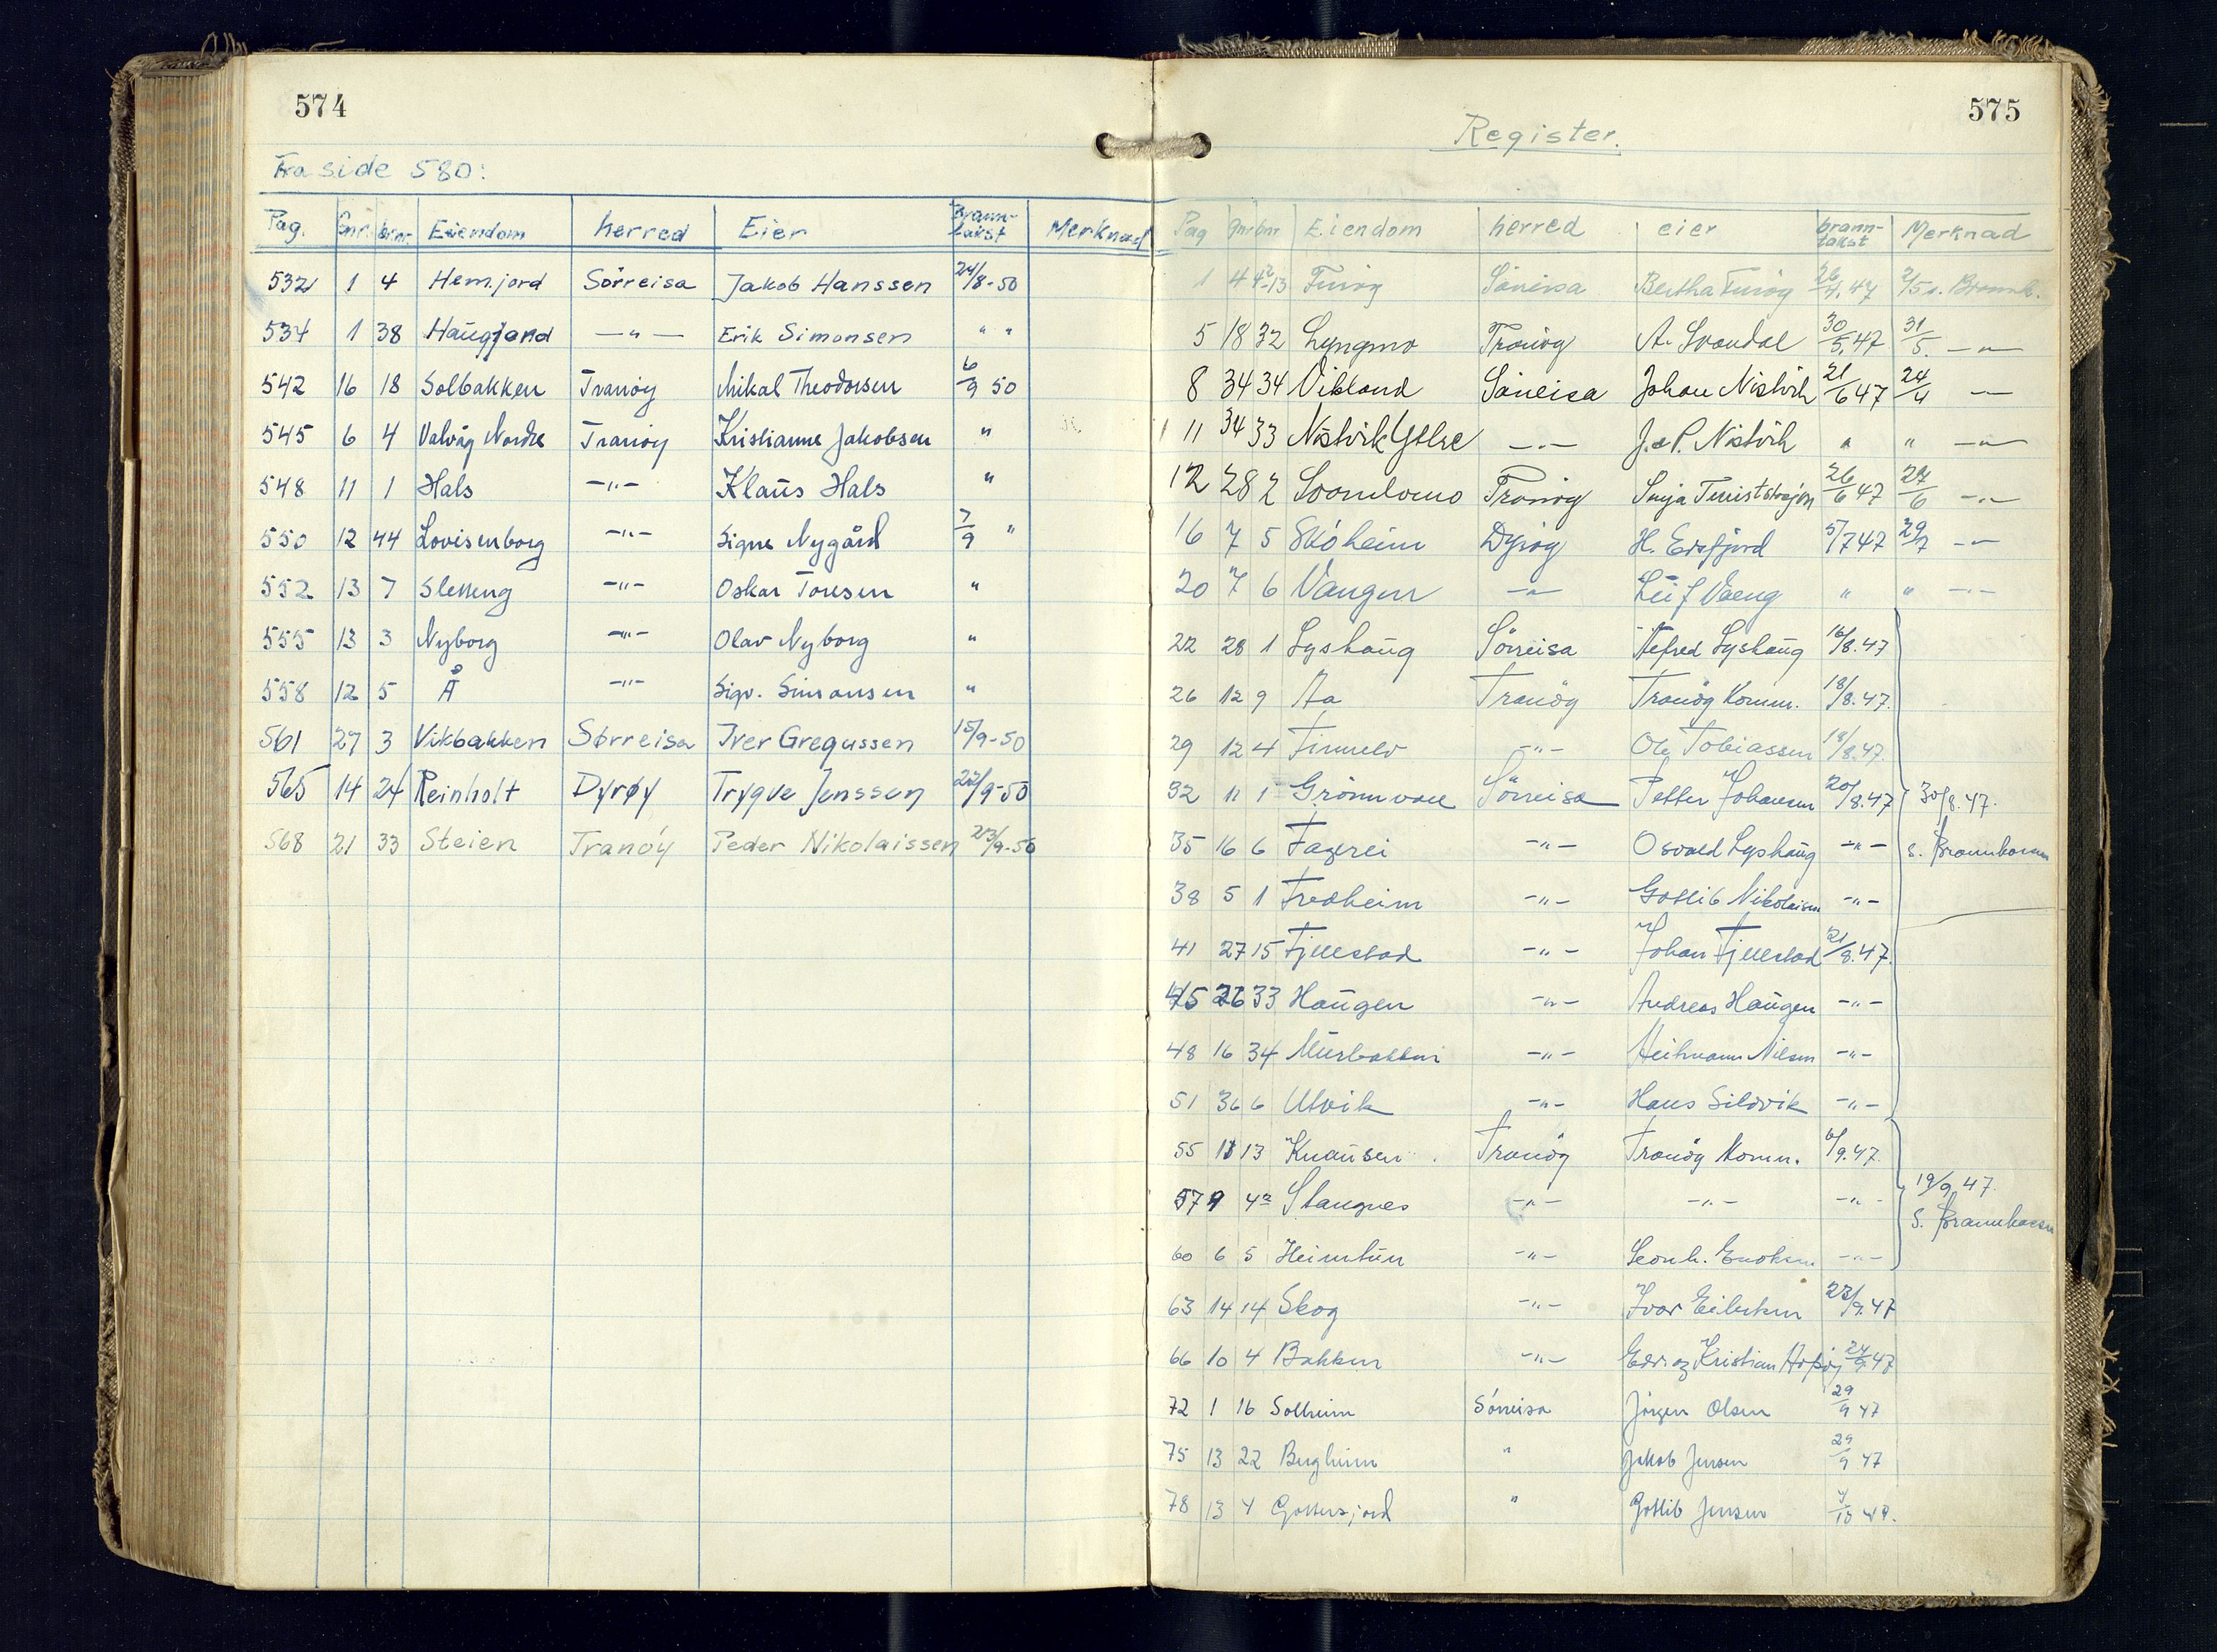 574
Fra side 580:
Pag. Gnr. bnr. Eiendom herred Eier Brann-takst Merknad
532 1 4 Hemjord Sörreisa Jakob Hanssen 24/8-50
534 1 38 Haugjord —"— Erik Simonsen " "
542 16 18 Solbakken Tranöy Mikal Theodorsen 6/9 50
545 6 4 Valvåg Nordre Tranöy Kristianne Jakobsen "
548 11 1 Hals —"— Klaus Hals "
550 12 44 Lovisenborg —"— Signe Nygård 7/9 "
552 13 7 Sletteng —"— Oskar Toresen "
555 13 3 Nyborg —"— Olav Nyborg "
558 12 5 Å —"— Sigv. Simonsen "
561 27 3 Vikbakken Sørreisa Iver Gregussen 15/9-50
565 14 24 Reinholt Dyrøy Trygve Jenssen 22/9-50
568 21 33 Steien Tranöy Peder Nikolaissen 23/9-50
575
Register.
Pag Gnr bnr Eiendom herred eier brann-takst Merknad
1 4 Furöy Sörreisa Bertha Furöy 26/4.47 2/5 s. Brannk.
5 18 32 Lyngmo Tranöy A. Svandal 30/5.47 31/5. —"—
8 34 34 Vikland Sörreisa Johan Nistvik 21/6 47 24/6 —"—
11 34 33 Nistvik Ytre —"— J. & P. Nistvik " " —"—
12 28 2 Svandomo Tranöy 26/6 47 27/6 —"—
16 7 5 Skóheim Dyröy H. Ersfjord 5/7 47 29/7 —"—
20 7 6 Vangen —"— Leif Vaeng " " —"—
22 28 1 Lyshaug Sörreisa Alfred Lyshaug 16/8.47
26 12 9 Aa Tranöy Tranöy Komm. 18/8.47.
29 12 4 Finnelv —"— Ole Tobiassen 18/8.47.
32 11 1 Grönnvoll Sörreisa Petter Johansen 20/8.47 30/8.47.
35 16 6 Fagerli —"— Osvald Lyshaug —"— s. Brannkassen
38 5 1 Fredheim —"— Gotlib Nikolaisen —"—
41 27 15 Fjellstad —"— Johan Fjellstad 21/8.47.
45 26 33 Haugen —"— Andreas Haugen —"—
48 16 34 Murbakken —"— Nilsen —"—
51 36 6 Utvik —"— Hans Sildvik —"—
55 11 13 Knausen Tranöy Tranöy Komm. 6/9.47.
57 9 4² Stangnes —"— —"— —"— 19/9 47.
s. Brannkassen
60 6 5 Heimtun —"— Leonh. Enoksen —"—
63 14 14 Skog —"— Ivar Eilertsen 23/9.47
66 10 4 Bakken —"— Edv. og Kristian 24/9 47
72 1 16 Solheim Sörreisa Jörgen Olsen 29/9 47
75 13 22 Bergheim " Jakob Jensen 29/9 47
78 13 4 Gottersjord " Gotlib Jensen